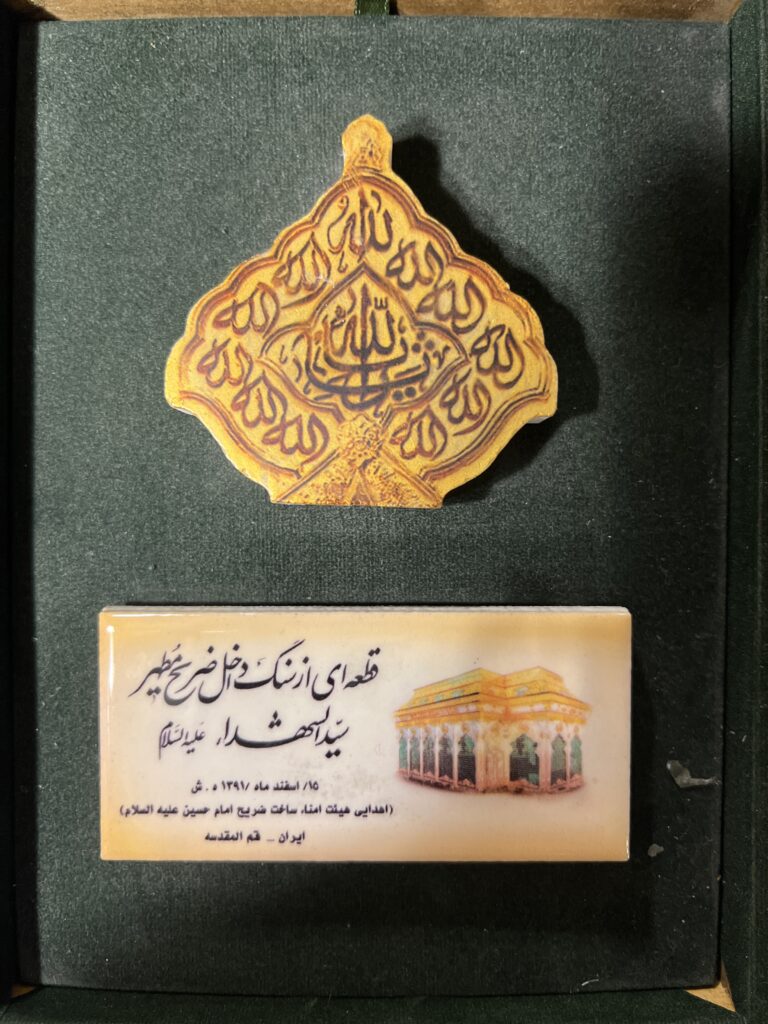 الله
الله
الله
الله
الله
الله
الله
الله
الله
الله
الله
الله
قطعه‌ای از سنگ داخل ضریح مُطهر
سیّدالشهداء علیه السَّلام
۱۵/ اسفند ماه /۱۳۹۱ ه . ش
(اهدایی هیئت امناء ساخت ضریح امام حسین علیه السلام)
ایران _ قم المقدسه